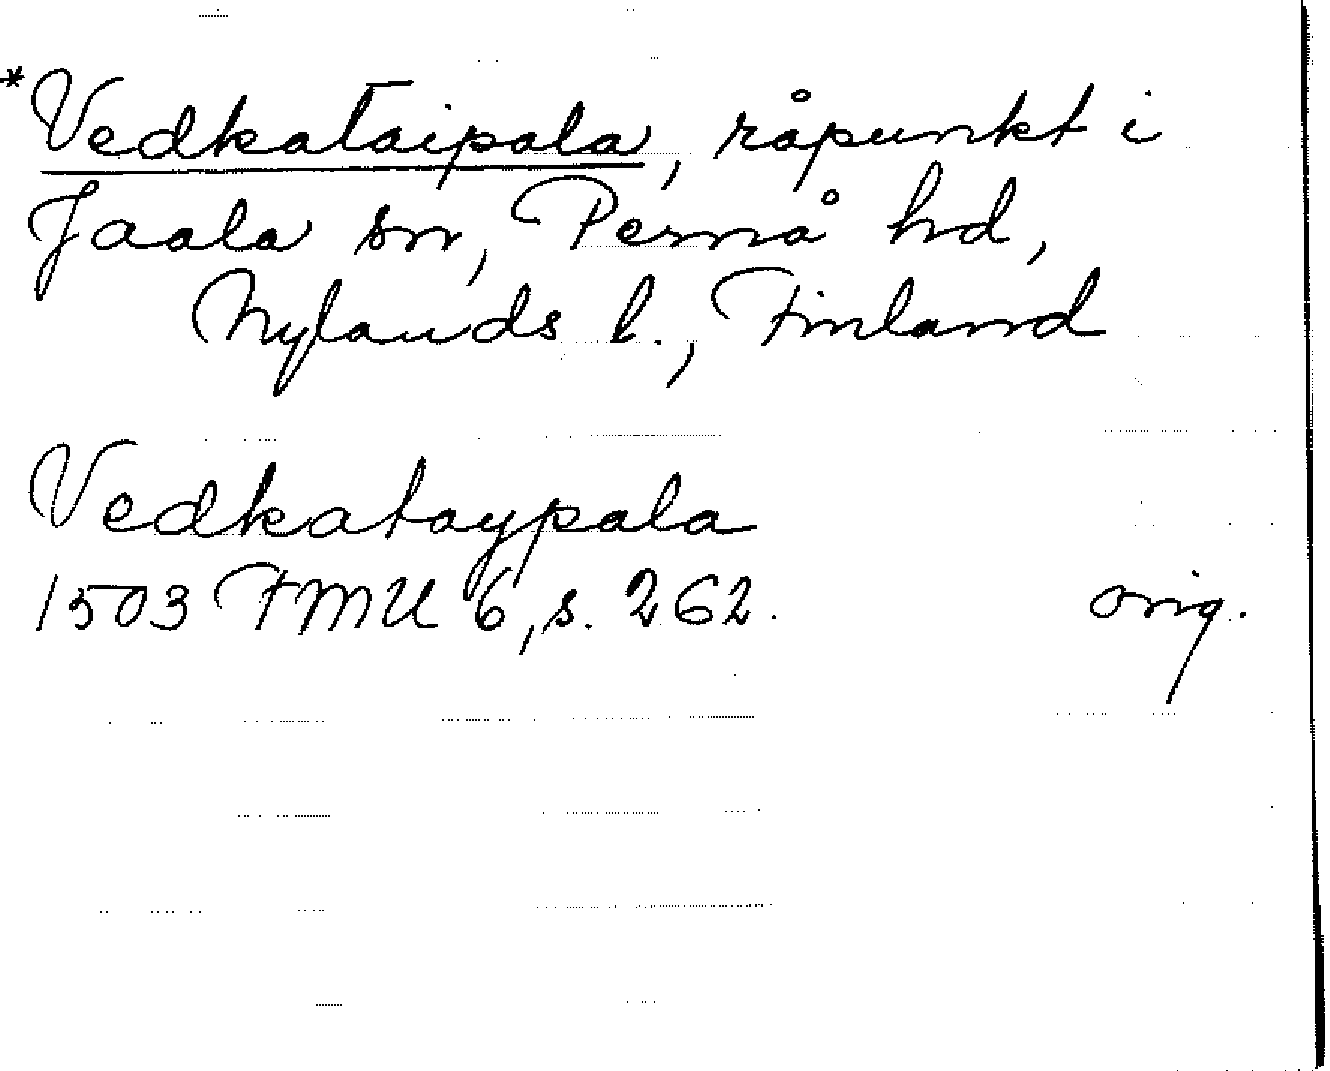 *Vedkataipala, råpunkt i
Jaala sn, Pernå hd,
Nylands l., Finland
Vedkataypala
1503 FMU 6, s. 262. orig.